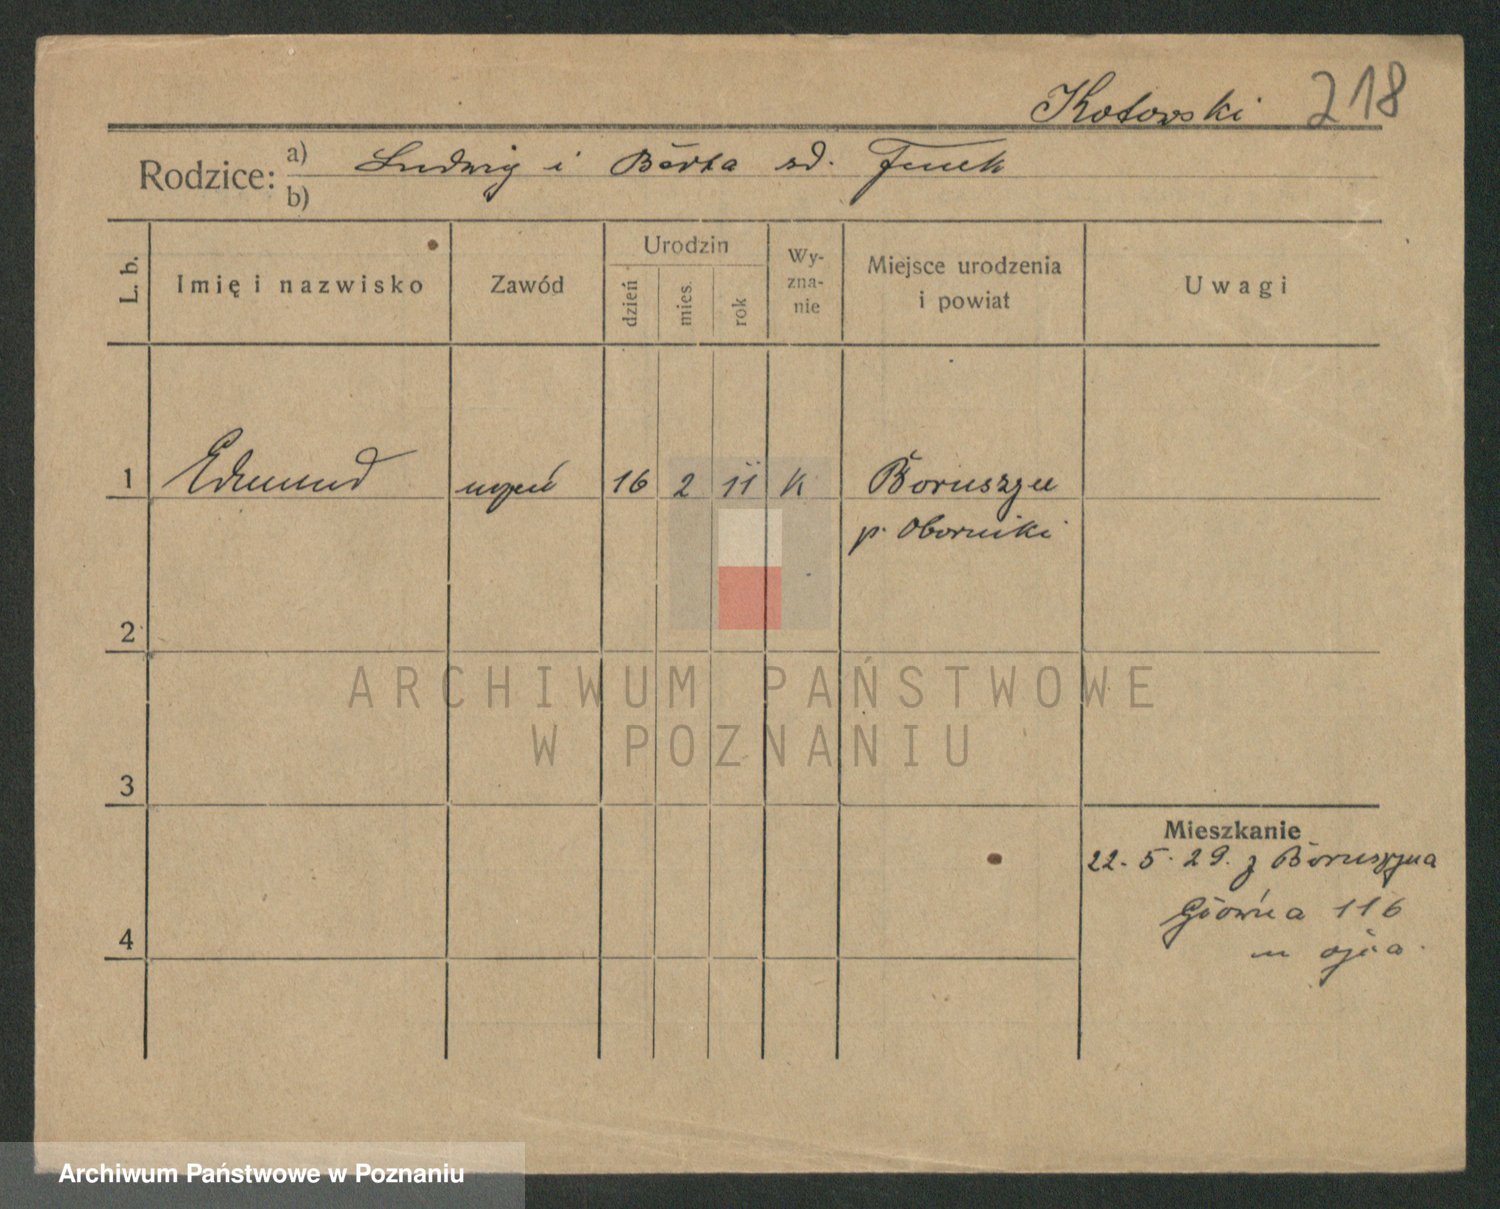 Kotowski 218
Rodzice: a) Ludwig i Berta zd. Funck
b)
L. b.
Imię i nazwisko
Zawód
Urodzin
dzień
mies.
rok
Wy-
zna-
nie
Miejsce urodzenia
i powiat
Uwagi
1 Edmund uczeń 16 2 11 k Boruszyn
p. Oborniki
2
ARCHIWUM PAŃSTWOWE
W POZNANIU
3
Mieszkanie
22.5.29. z Boruszyna
Główna 116
u ojca.
4
Archiwum Państwowe w Poznaniu